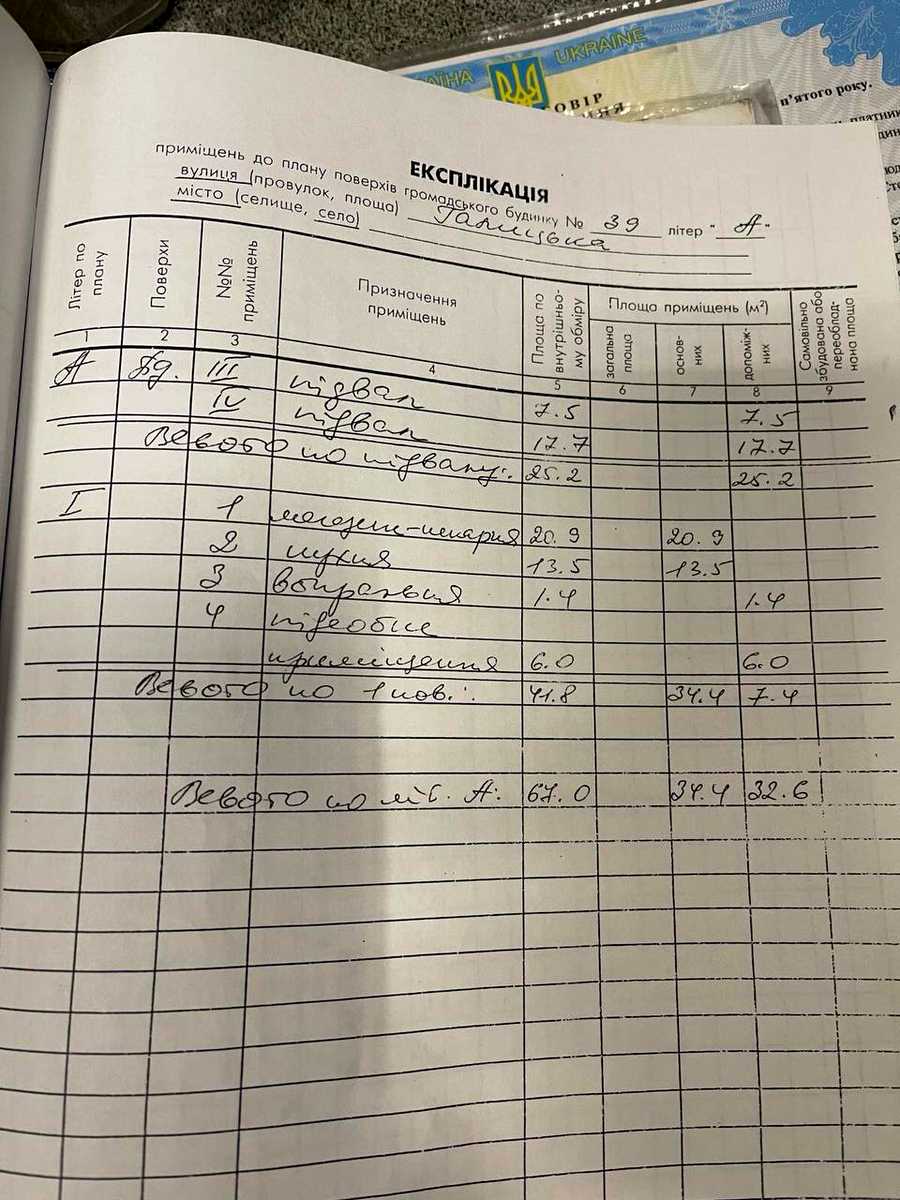 УКРАЇНА UKRAINE
п'ятого року.
ЕКСПЛІКАЦІЯ
приміщень до плану поверхів громадського будинку № 39 літер "А"
вулиця (провулок, площа) Галицька
місто (селище, село)
Літер по плану Поверхи №№ приміщень Призначення приміщень Площа по внутрішньому обміру Площа приміщень (м²) Самовільно збудована або переобладнана площа
загальна площа основних допоміжних
1 2 3 4 5 6 7 8 9
А Пд. III підвал 7.5 7.5
IV підвал 17.7 17.7
Всього по підвалу: 25.2 25.2
I 1 магазин-пекарня 20.9 20.9
2 кухня 13.5 13.5
3 вбиральня 1.4 1.4
4 підсобне
приміщення 6.0 6.0
Всього по 1 пов.: 41.8 34.4 7.4
Всього по літ. А: 67.0 34.4 32.6